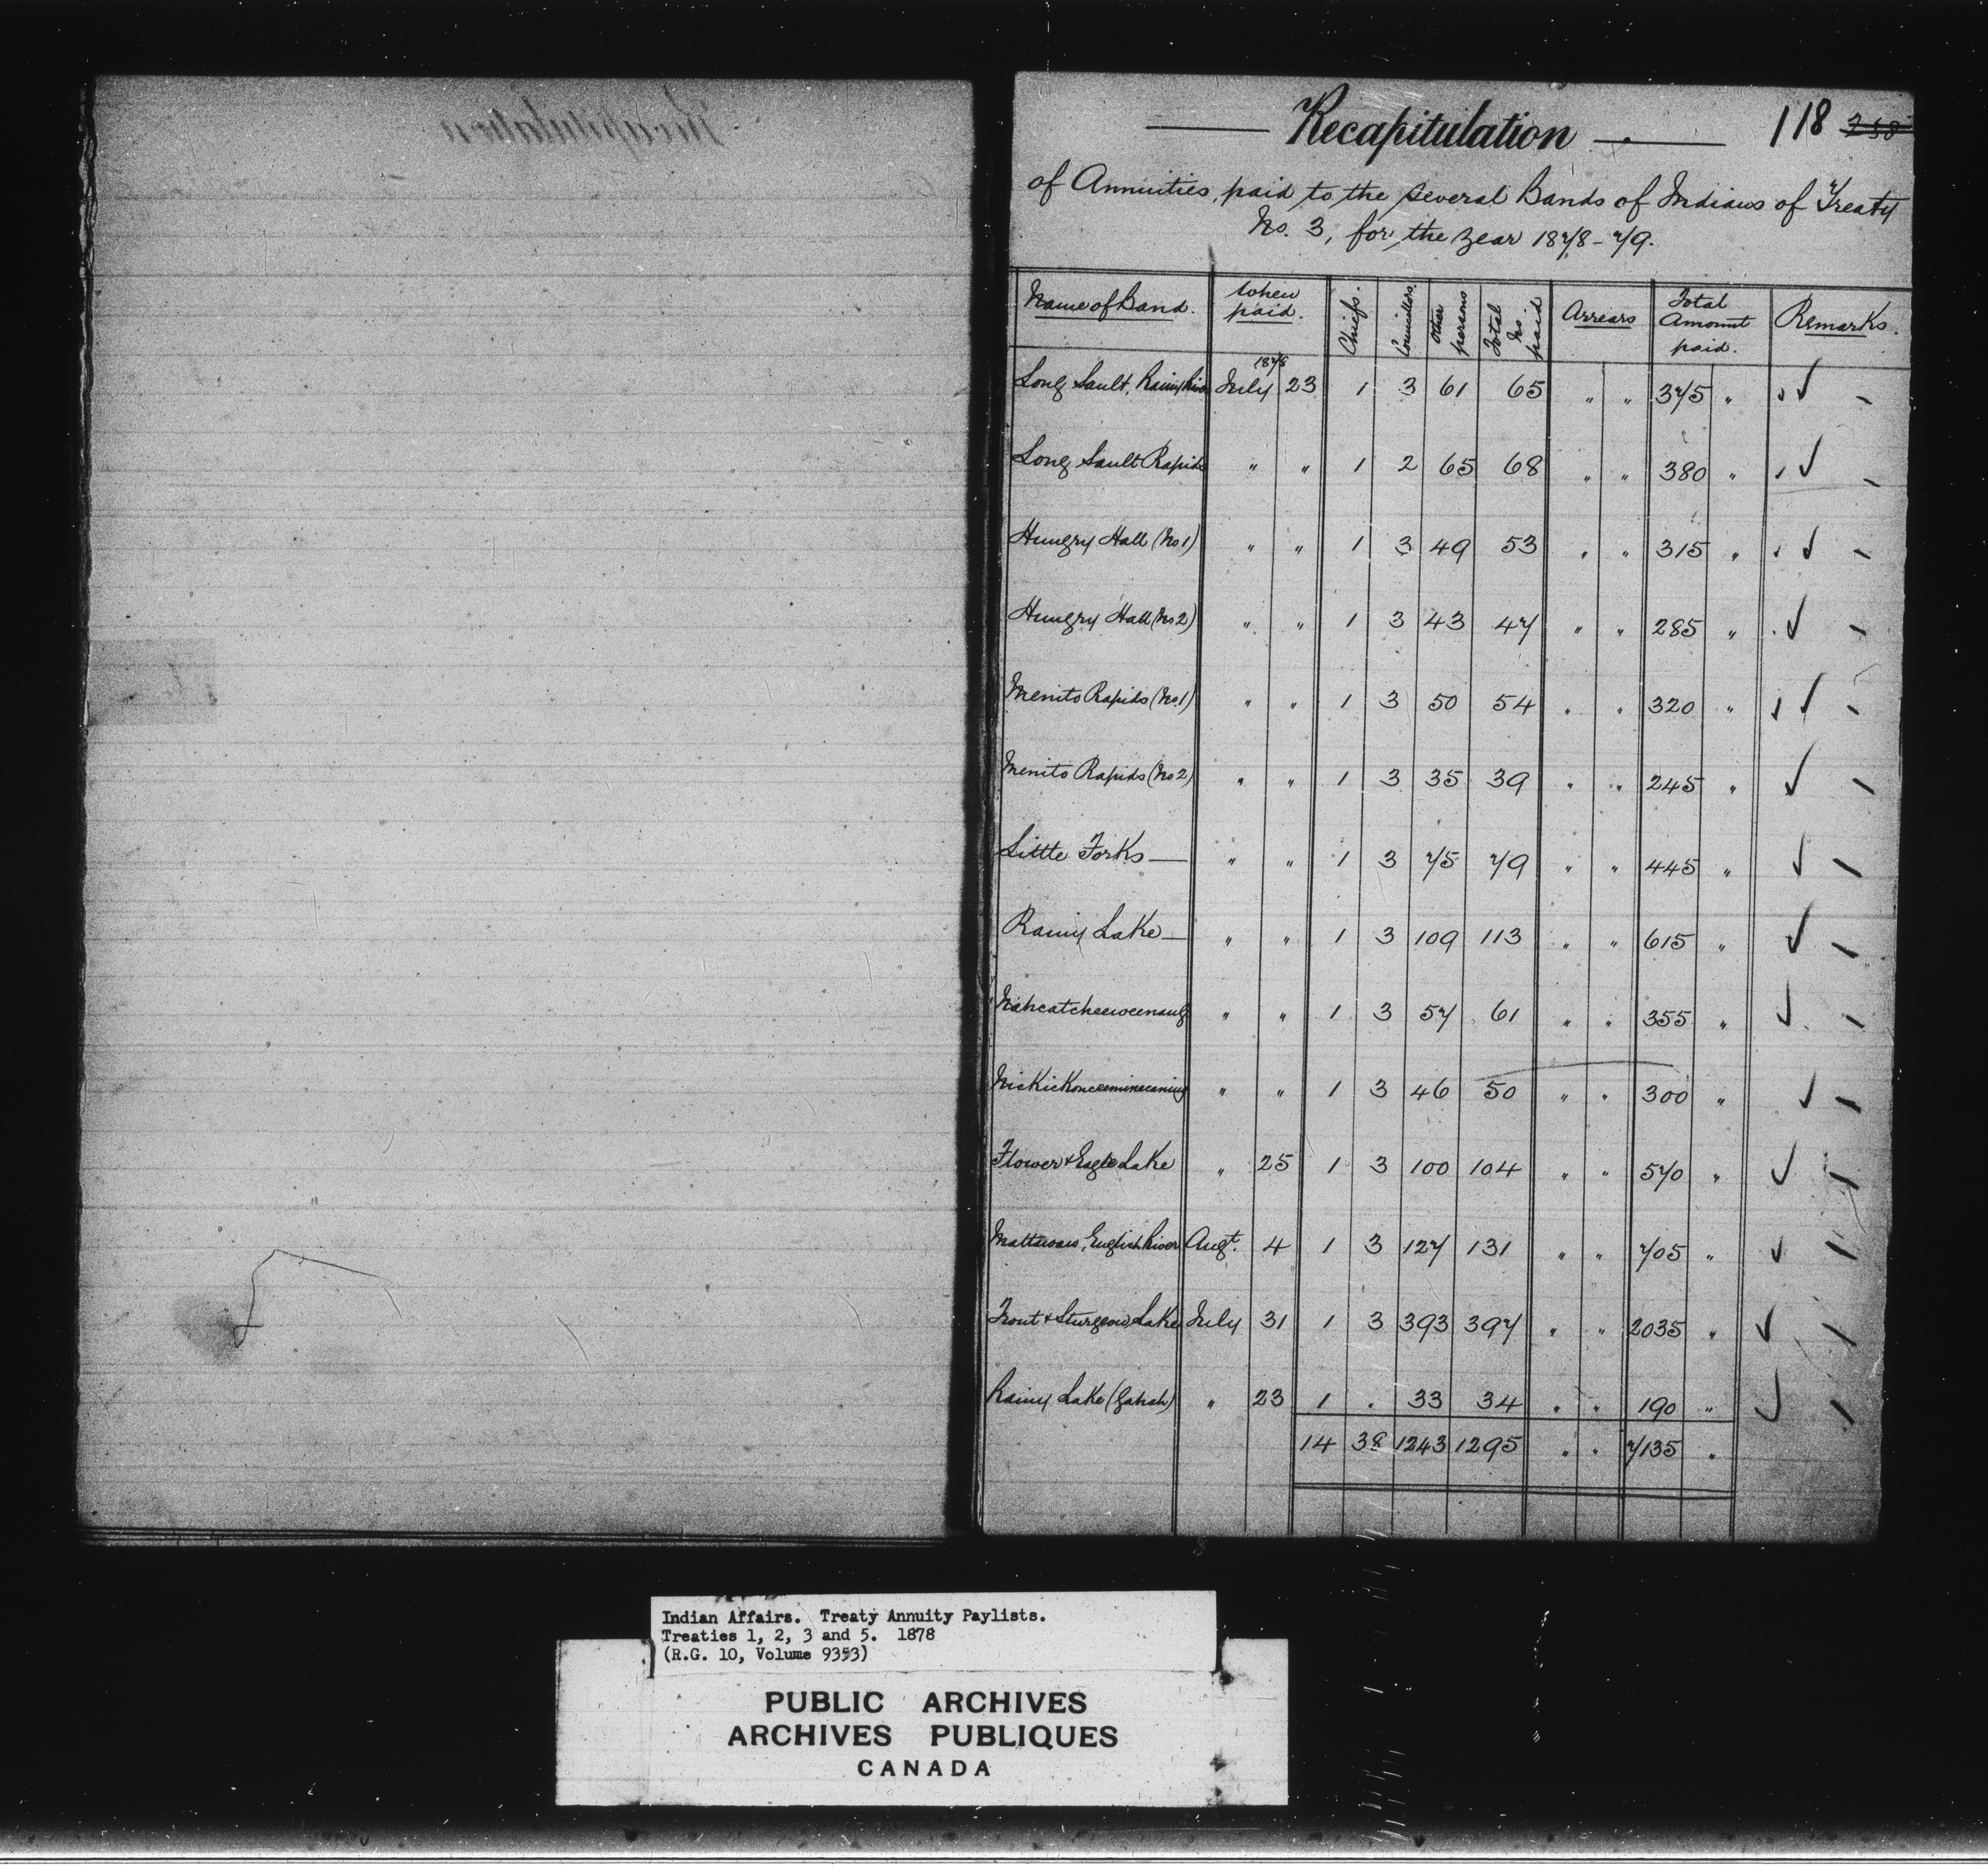 Recapitulation 118
of Annuities, paid to the several Bands of Indians of Treaty
No. 3, for the Year 1878-79.
Name of Band. When paid. Chiefs. Councillors. Other persons Total No. paid Arrears Total Amount paid. Remarks.
1878
Long Sault, Rainy July 23 1 3 61 65 " " 375 "
Long Sault Rapids " " 1 2 65 68 " " 380 "
Hungry Hall (No 1) " " 1 3 49 53 " " 315 "
Hungry Hall (No 2) " " 1 3 43 47 " " 285 "
Menito Rapids (No. 1) " " 1 3 50 54 " " 320 "
Menito Rapids (No 2) " " 1 3 35 39 " " 245 "
Little Forks — " " 1 3 75 79 " " 445 "
Rainy Lake — " " 1 3 109 113 " " 615 "
" " 1 3 57 61 " " 355 "
" " 1 3 46 50 " " 300 "
Flower & Eagle Lake " 25 1 3 100 104 " " 570 "
Mattawan, English River Augt. 4 1 3 127 131 " " 705 "
Trout & Sturgeon Lake July 31 1 3 393 397 " " 2035 "
Rainy Lake (Gahah) " 23 1 . 33 34 " " 190 "
14 38 1243 1295 " " 7135 "
Indian Affairs. Treaty Annuity Paylists.
Treaties 1, 2, 3 and 5. 1878
(R.G. 10, Volume 9353)
PUBLIC ARCHIVES
ARCHIVES PUBLIQUES
CANADA